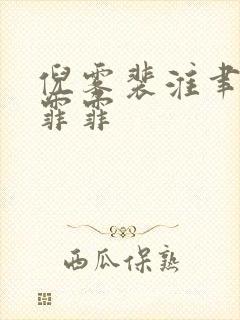 倪雾裴淮聿
霏霏
西瓜保熟